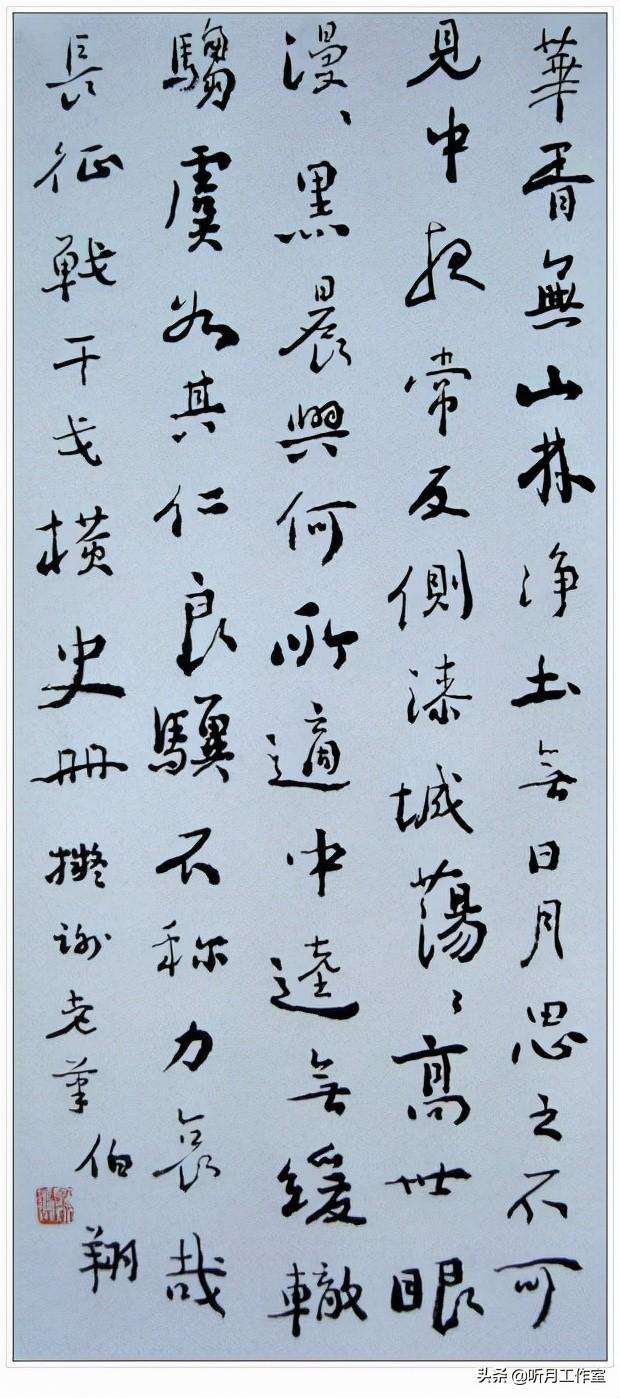 華胥無山林净土無日月思之不可
見中夜常反側漆城蕩〻高世眼
漫〻黑晨興何所適中逵無緩轍
騶虞為其仁良驥不称力哀哉
長征戰干戈橫史册擬謝老筆
伯翔
头条 @听月工作室